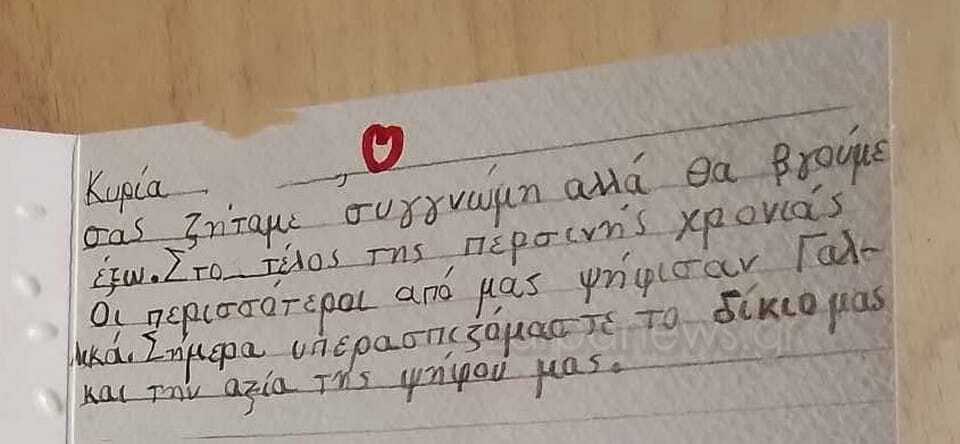 Κυρία ,
σας ζητάμε συγγνώμη αλλά θα βγούμε
έξω. Στο τέλος της περσινής χρονιάς
Οι περισσότεροι από μας ψήφισαν Γαλ-
λικά. Σήμερα υπερασπιζόμαστε το δίκιο μας
και την αξία της ψήφου μας.